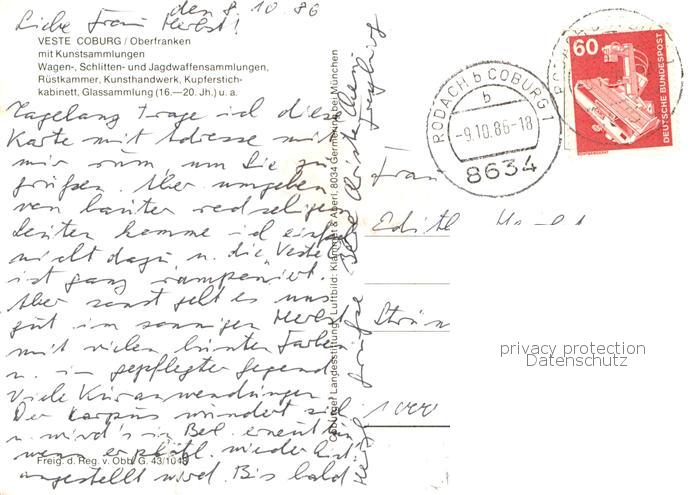 den 8.10.86
Liebe Frau Herbst!
VESTE COBURG / Oberfranken
mit Kunstsammlungen
Wagen-, Schlitten- und Jagdwaffensammlungen,
Rüstkammer, Kunsthandwerk, Kupferstich-
kabinett, Glassammlung (16.—20. Jh.) u. a.
Tagelang trage ich diese
Karte mit Adresse mit
mir rum um Sie zu
grüßen. Aber umgeben
von lauter redseligen
Leuten komme ich einfach
nicht dazu u. die Veste
ist ganz ramponiert.
Aber sonst geht es uns
gut im sonnigen Herbst
mit vielen bunten Farben
u. in gepflegter Gegend
Viele Kuranwendungen.
Der Corpus wundert sich
u. wird's in Bln. erneut tun
wenn er plötzl. wieder
angestellt wird. Bis bald
Freig. d. Reg. v. Obb. G. 43/1043
Herzl. Grüße
Coburger Landesstiftung, Luftbild: Klammet & Aberl, 8034 Germering bei München
RODACH b COBURG 1
b
-9.10.86-18
8634
60
DEUTSCHE BUNDESPOST
Frau
Edith
1000
privacy protection
Datenschutz